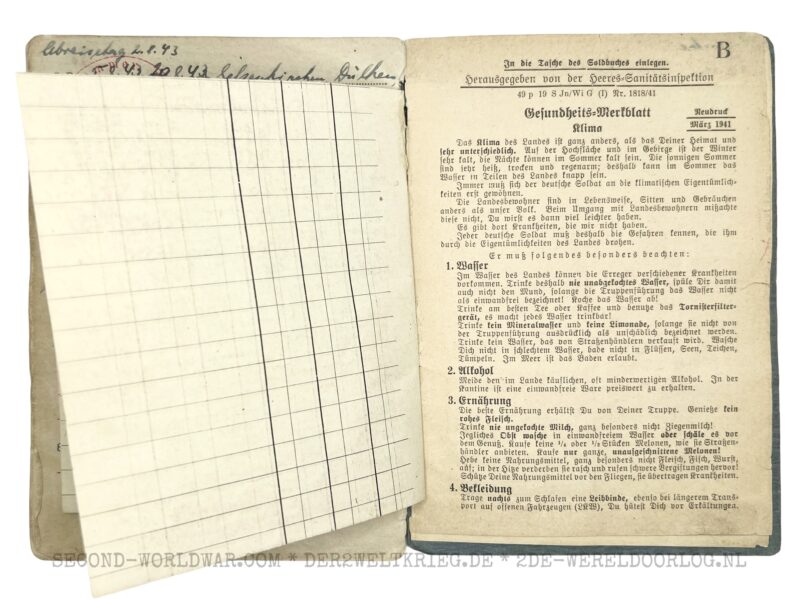 Abreisetag 2.8.43
20.8.43 Gelsenkirchen, Dülken
B
In die Tasche des Soldbuches einlegen.
Herausgegeben von der Heeres-Sanitätsinspektion
49 p 19 S Jn/Wi G (I) Nr. 1818/41
Gesundheits-Merkblatt
Neudruck
März 1941
Klima
Das Klima des Landes ist ganz anders, als das Deiner Heimat und
sehr unterschiedlich. Auf der Hochfläche und im Gebirge ist der Winter
sehr kalt, die Nächte können im Sommer kalt sein. Die sonnigen Sommer
sind sehr heiß, trocken und regenarm; deshalb kann im Sommer das
Wasser in Teilen des Landes knapp sein.
Immer muß sich der deutsche Soldat an die klimatischen Eigentümlich-
keiten erst gewöhnen.
Die Landesbewohner sind in Lebensweise, Sitten und Gebräuchen
anders als unser Volk. Beim Umgang mit Landesbewohnern mißachte
diese nicht, Du wirst es dann viel leichter haben.
Es gibt dort Krankheiten, die wir nicht haben.
Jeder deutsche Soldat muß deshalb die Gefahren kennen, die ihm
durch die Eigentümlichkeiten des Landes drohen.
Er muß folgendes besonders beachten:
1. Wasser
Im Wasser des Landes können die Erreger verschiedener Krankheiten
vorkommen. Trinke deshalb nie unabgekochtes Wasser, spüle Dir damit
auch nicht den Mund, solange die Truppenführung das Wasser nicht
als einwandfrei bezeichnet! Koche das Wasser ab!
Trinke am besten Tee oder Kaffee und benutze das Tornisterfilter-
gerät, es macht jedes Wasser trinkbar!
Trinke kein Mineralwasser und keine Limonade, solange sie nicht von
der Truppenführung ausdrücklich als unschädlich bezeichnet werden.
Trinke kein Wasser, das von Straßenhändlern verkauft wird. Wasche
Dich nicht in schlechtem Wasser, bade nicht in Flüssen, Seen, Teichen,
Tümpeln. Im Meer ist das Baden erlaubt.
2. Alkohol
Meide den im Lande käuflichen, oft minderwertigen Alkohol. In der
Kantine ist eine einwandfreie Ware preiswert zu erhalten.
3. Ernährung
Die beste Ernährung erhältst Du von Deiner Truppe. Genieße kein
rohes Fleisch.
Trinke nie ungekochte Milch, ganz besonders nicht Ziegenmilch!
Jegliches Obst wasche in einwandfreiem Wasser oder schäle es vor
dem Genuß. Kaufe keine 1/4 oder 1/2 Stücken Melonen, wie sie Straßen-
händler anbieten. Kaufe nur ganze, unaufgeschnittene Melonen!
Hebe keine Nahrungsmittel, ganz besonders nicht Fleisch, Fisch, Wurst,
auf; in der Hitze verderben sie rasch und rufen schwere Vergiftungen hervor!
Schütze Deine Nahrungsmittel vor den Fliegen, sie übertragen Krankheiten.
4. Bekleidung
Trage nachts zum Schlafen eine Leibbinde, ebenso bei längerem Trans-
port auf offenen Fahrzeugen (LKW), Du hütest Dich vor Erkältungen.
SECOND-WORLDWAR.COM * DER2WELTKRIEG.DE * 2DE-WERELDOORLOG.NL